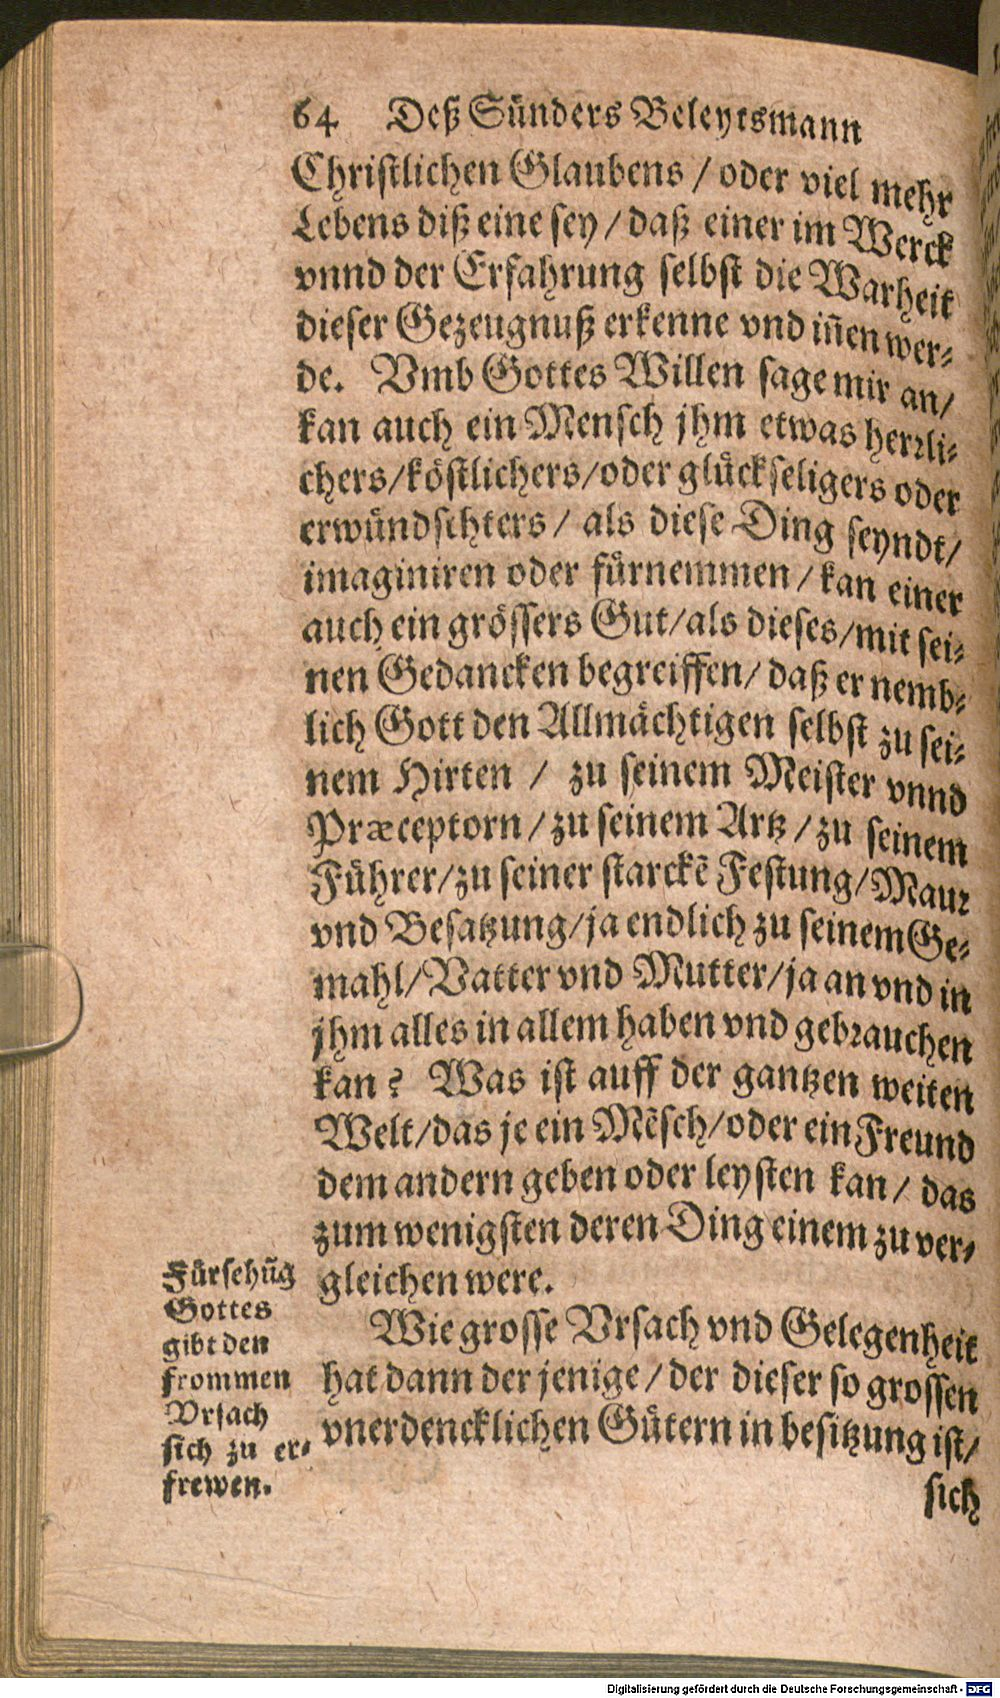 64 Deß Sünders Beleytsmann
Christlichen Glaubens / oder viel mehr
Lebens diß eine sey / daß einer im Werck
vnnd der Erfahrung selbst die Warheit
dieser Gezeugnuß erkenne vnd iñen wer-
de. Vmb Gottes Willen sage mir an/
kan auch ein Mensch jhm etwas herrli-
chers/köstlichers/oder glückseligers oder
erwündschters / als diese Ding seyndt/
imaginiren oder fürnemmen / kan einer
auch ein grössers Gut/als dieses/mit sei-
nen Gedancken begreiffen/ daß er nemb-
lich Gott den Allmächtigen selbst zu sei-
nem Hirten / zu seinem Meister vnnd
Præceptorn / zu seinem Artz / zu seinem
Führer/zu seiner starckē Festung/Maur
vnd Besatzung/ja endlich zu seinem Ge-
mahl/Vatter vnd Mutter/ja an vnd in
jhm alles in allem haben vnd gebrauchen
kan? Was ist auff der gantzen weiten
Welt/das je ein Mēsch/oder ein Freund
dem andern geben oder leysten kan/ das
zum wenigsten deren Ding einem zu ver-
gleichen were.
Wie grosse Vrsach vnd Gelegenheit
hat dann der jenige / der dieser so grossen
vnerdencklichen Gütern in besitzung ist/
sich
Fürsehūg
Gottes
gibt den
frommen
Vrsach
sich zu er-
frewen.
Digitalisierung gefördert durch die Deutsche Forschungsgemeinschaft - DFG